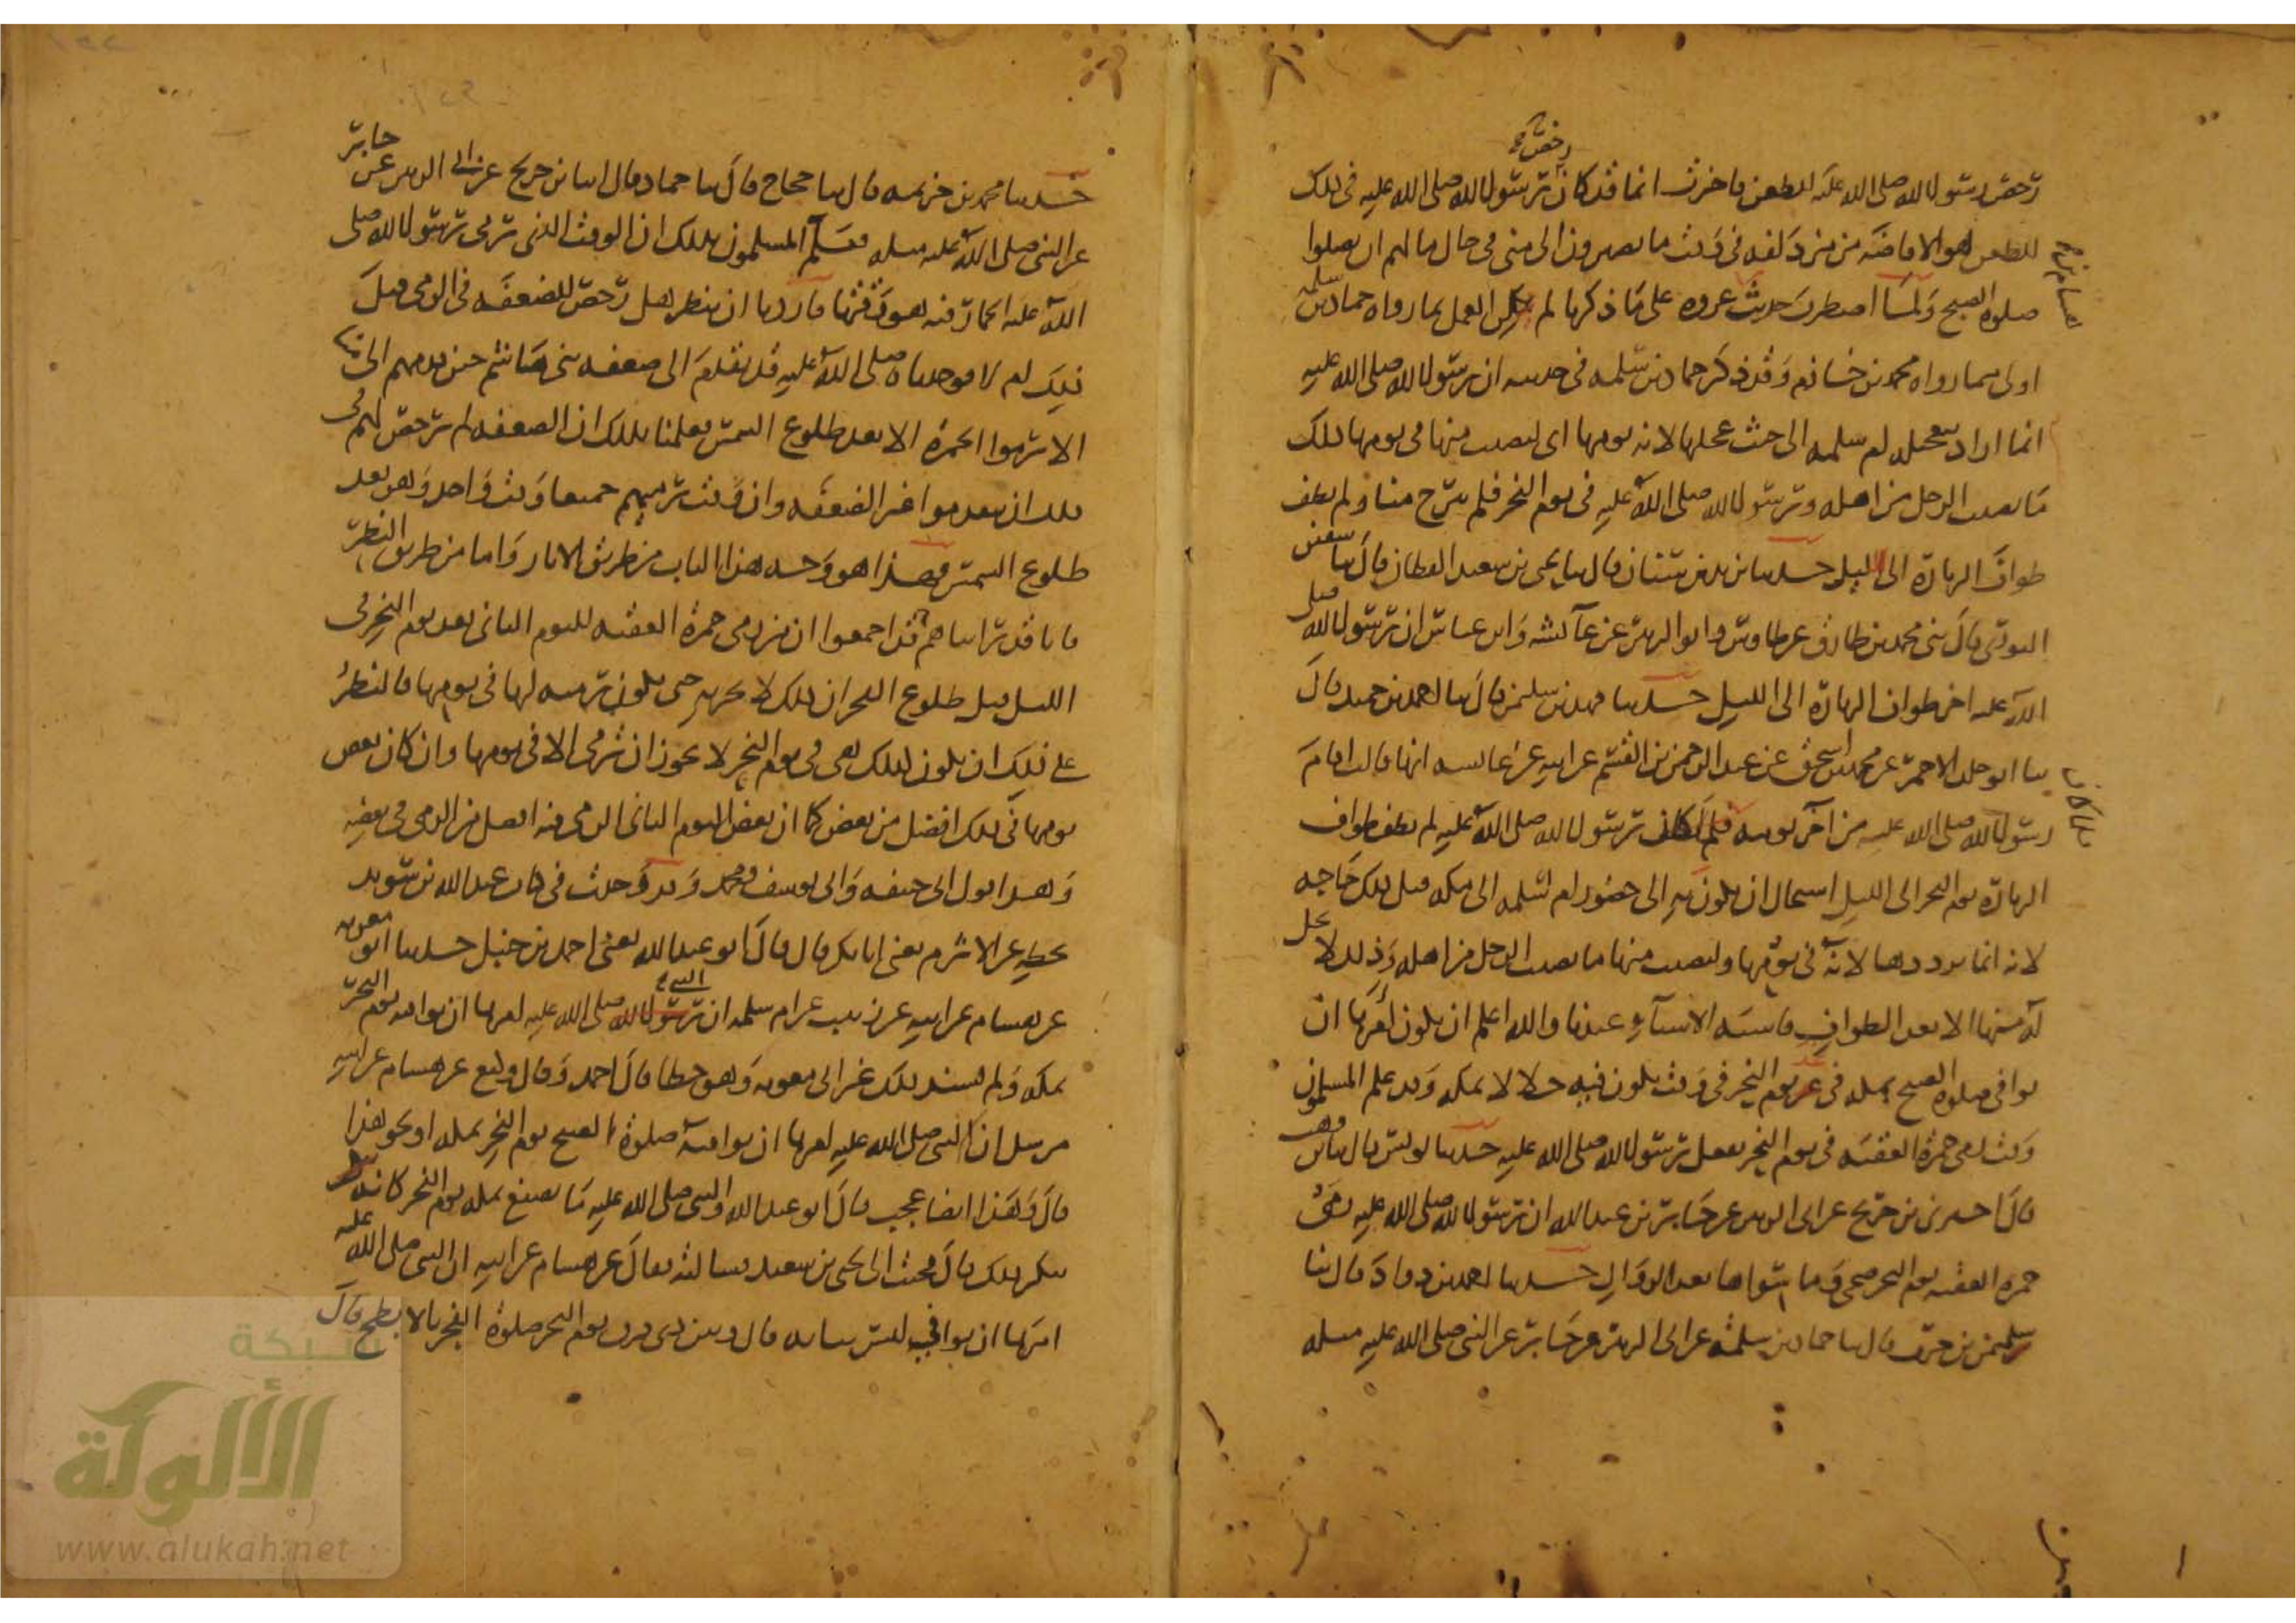 رخص رسول الله صلى الله عليه للظعن فاخبرت انما قد كان رسول الله صلى الله عليه في ذلك
رخص
للظعن هو الافاضة من مزدلفة في وقت ما يصيرون الى منى في حال ما لهم ان يصلوا
صلوة الصبح ولما اضطرب حديث عروة على ما ذكرنا لم يكن العمل بما رواه حماد بن سلمة
اولى مما رواه محمد بن خازم وقد ذكر حماد بن سلمة في حديثه ان رسول الله صلى الله عليه
انما اراد بتعجيله ام سلمة الى حيث عجلها لانه يومها اي ليصيب منها في يومها ذلك
ما يصيب الرجل من اهله ورسول الله صلى الله عليه في يوم النحر فلم يبرح منا ولم يطف
طواف الزيارة الى الليل حدثنا يزيد بن سنان قال ثنا يحيى بن سعيد القطان قال ثنا سفين
الثوري قال ثنى محمد بن طارق عن طاوس وابو الزبير عن عائشة وابن عباس ان رسول الله صلى
الله عليه اخر طواف الزيارة الى الليل حدثنا فهد بن سليمن قال ثنا احمد بن حميد قال
ثنا ابو خلد الاحمر عن محمد بن اسحق عن عبد الرحمن بن القسم عن ابيه عن عائشة انها قالت افاض
رسول الله صلى الله عليه من آخر يومه فلما كان رسول الله صلى الله عليه لم يطف طواف
الزيارة يوم النحر الى الليل استحال ان يكون به الى حضور ام سلمة الى مكة قبل ذلك حاجة
لانه انما يريدها لانه في يومها وليصيب منها ما يصيب الرجل من اهله وذلك لا يحل
له منها الا بعد الطواف فاشبه الاشيآء عندنا والله اعلم ان يكون امرها ان
توافي صلوة الصبح بمكة في غد يوم النحر في وقت يكون فيه حلالا بمكة وقد علم المسلمون
وقت رمي جمرة العقبة في يوم النحر بفعل رسول الله صلى الله عليه حدثنا يونس قال ثنا بن وهب
قال اخبرني بن جريج عن ابي الزبير عن جابر بن عبد الله ان رسول الله صلى الله عليه رمى
جمرة العقبة يوم النحر ضحى وما سواها بعد الزوال حدثنا احمد بن داود قال ثنا
سليمن بن حرب قال ثنا حماد بن سلمة عن ابي الزبير عن جابر عن النبي صلى الله عليه مثله
حدثنا محمد بن خزيمة قال ثنا حجاج قال ثنا حماد قال انبا بن جريج عن ابي الزبير عن جابر
عن النبي صلى الله عليه مثله فعلم المسلمون بذلك ان الوقت الذي رمى رسول الله صلى
الله عليه الجمار فيه هو وقتها فاردنا ان ننظر هل رخص للضعفة في الرمي قبل
ذلك ام لا فوجدناه صلى الله عليه قد تقدم الى ضعفة بني هاشم حين قدمهم الى منى
الا ترموا الجمرة الا بعد طلوع الشمس فعلمنا بذلك ان الضعفة لم ترخص لهم في
ذلك ان يتقدموا غير الضعفة وان وقت رميهم جميعا وقت واحد وهو بعد
طلوع الشمس فهذا هو وجه هذا الباب من طريق الاثار واما من طريق النظر
فانا قد راينا هم قد اجمعوا ان من رمى جمرة العقبة لليوم الثاني بعد يوم النحر في
الليل قبل طلوع الفجر ان ذلك لا يجزيه حتى يكون رميه لها في يومها فالنظر
على ذلك ان يكون كذلك هي في يوم النحر لا يجوز ان ترمى الا في يومها وان كان بعض
يومها في ذلك افضل من بعض كما ان بعض اليوم الثاني الرمي فيه افضل من الرمي في بعضه
وهذا قول ابي حنيفة وابي يوسف ومحمد وقد وجدت في كتاب عبد الله بن سويد
بخطه عن الاثرم يعني ابا بكر قال قال ابو عبد الله يعني احمد بن حنبل حدثنا ابو معوية
عن هشام عن ابيه عن زينب عن ام سلمة ان رسول الله صلى الله عليه امرها ان توافيه يوم النحر
النبي
بمكة ولم يسند ذلك غير ابي معوية وهو خطا قال احمد وقال وكيع عن هشام عن ابيه
مرسل ان النبي صلى الله عليه امرها ان توافيه صلوة الصبح يوم النحر بمكة او نحو هذا
قال وهذا ايضا عجب قال ابو عبد الله والنبي صلى الله عليه ما يصنع بمكة يوم النحر كانه
ينكر ذلك قال فجئت الى يحيى بن سعيد فسالته فقال عن هشام عن ابيه ان النبي صلى الله عليه
امرها ان توافي ليس توافيه قال وبين ذي فرق يوم النحر صلوة الفجر بالابطح قال
شبكة
الألوكة
www.alukah.net